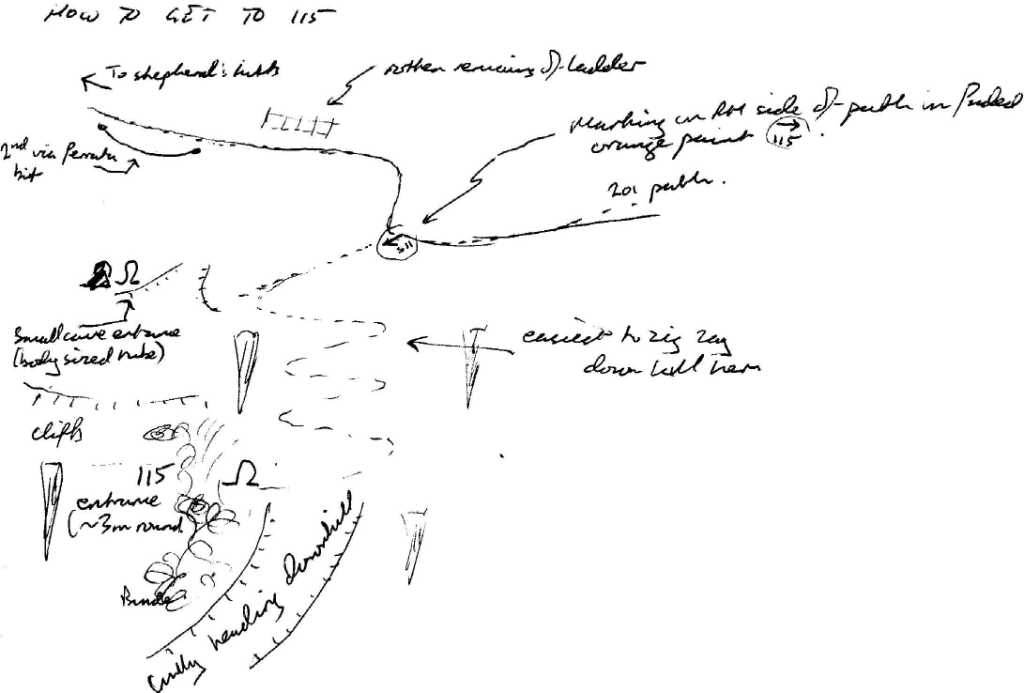 HOW TO GET TO 115
To shepherd's huts
rotten remains of ladder
Marking on RH side of path in faded
orange paint 115.
2nd via Ferrata
bit
201 path.
115
Small cave entrance
(body sized tube)
easiest to zig zag
down hill here
cliffs
115
entrance
(~3m round)
Bunde
Gully heading downhill